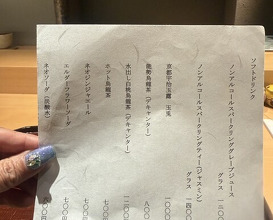 ソフトドリンク
ノンアルコールスパークリンググレープジュース
グラス 一五〇〇
ノンアルコールスパークリングティー(ジャスミン)
グラス 一四〇〇
京都宇治玉露 玉兎 一〇〇〇
能勢烏龍茶(デキャンター) 八〇〇
水出し白桃烏龍茶(デキャンター) 一二〇〇
ホット烏龍茶 七〇〇
ネオジンジャエール 七〇〇
エルダーフラワーソーダ 七〇〇
ネオソーダ(炭酸水) 〇〇